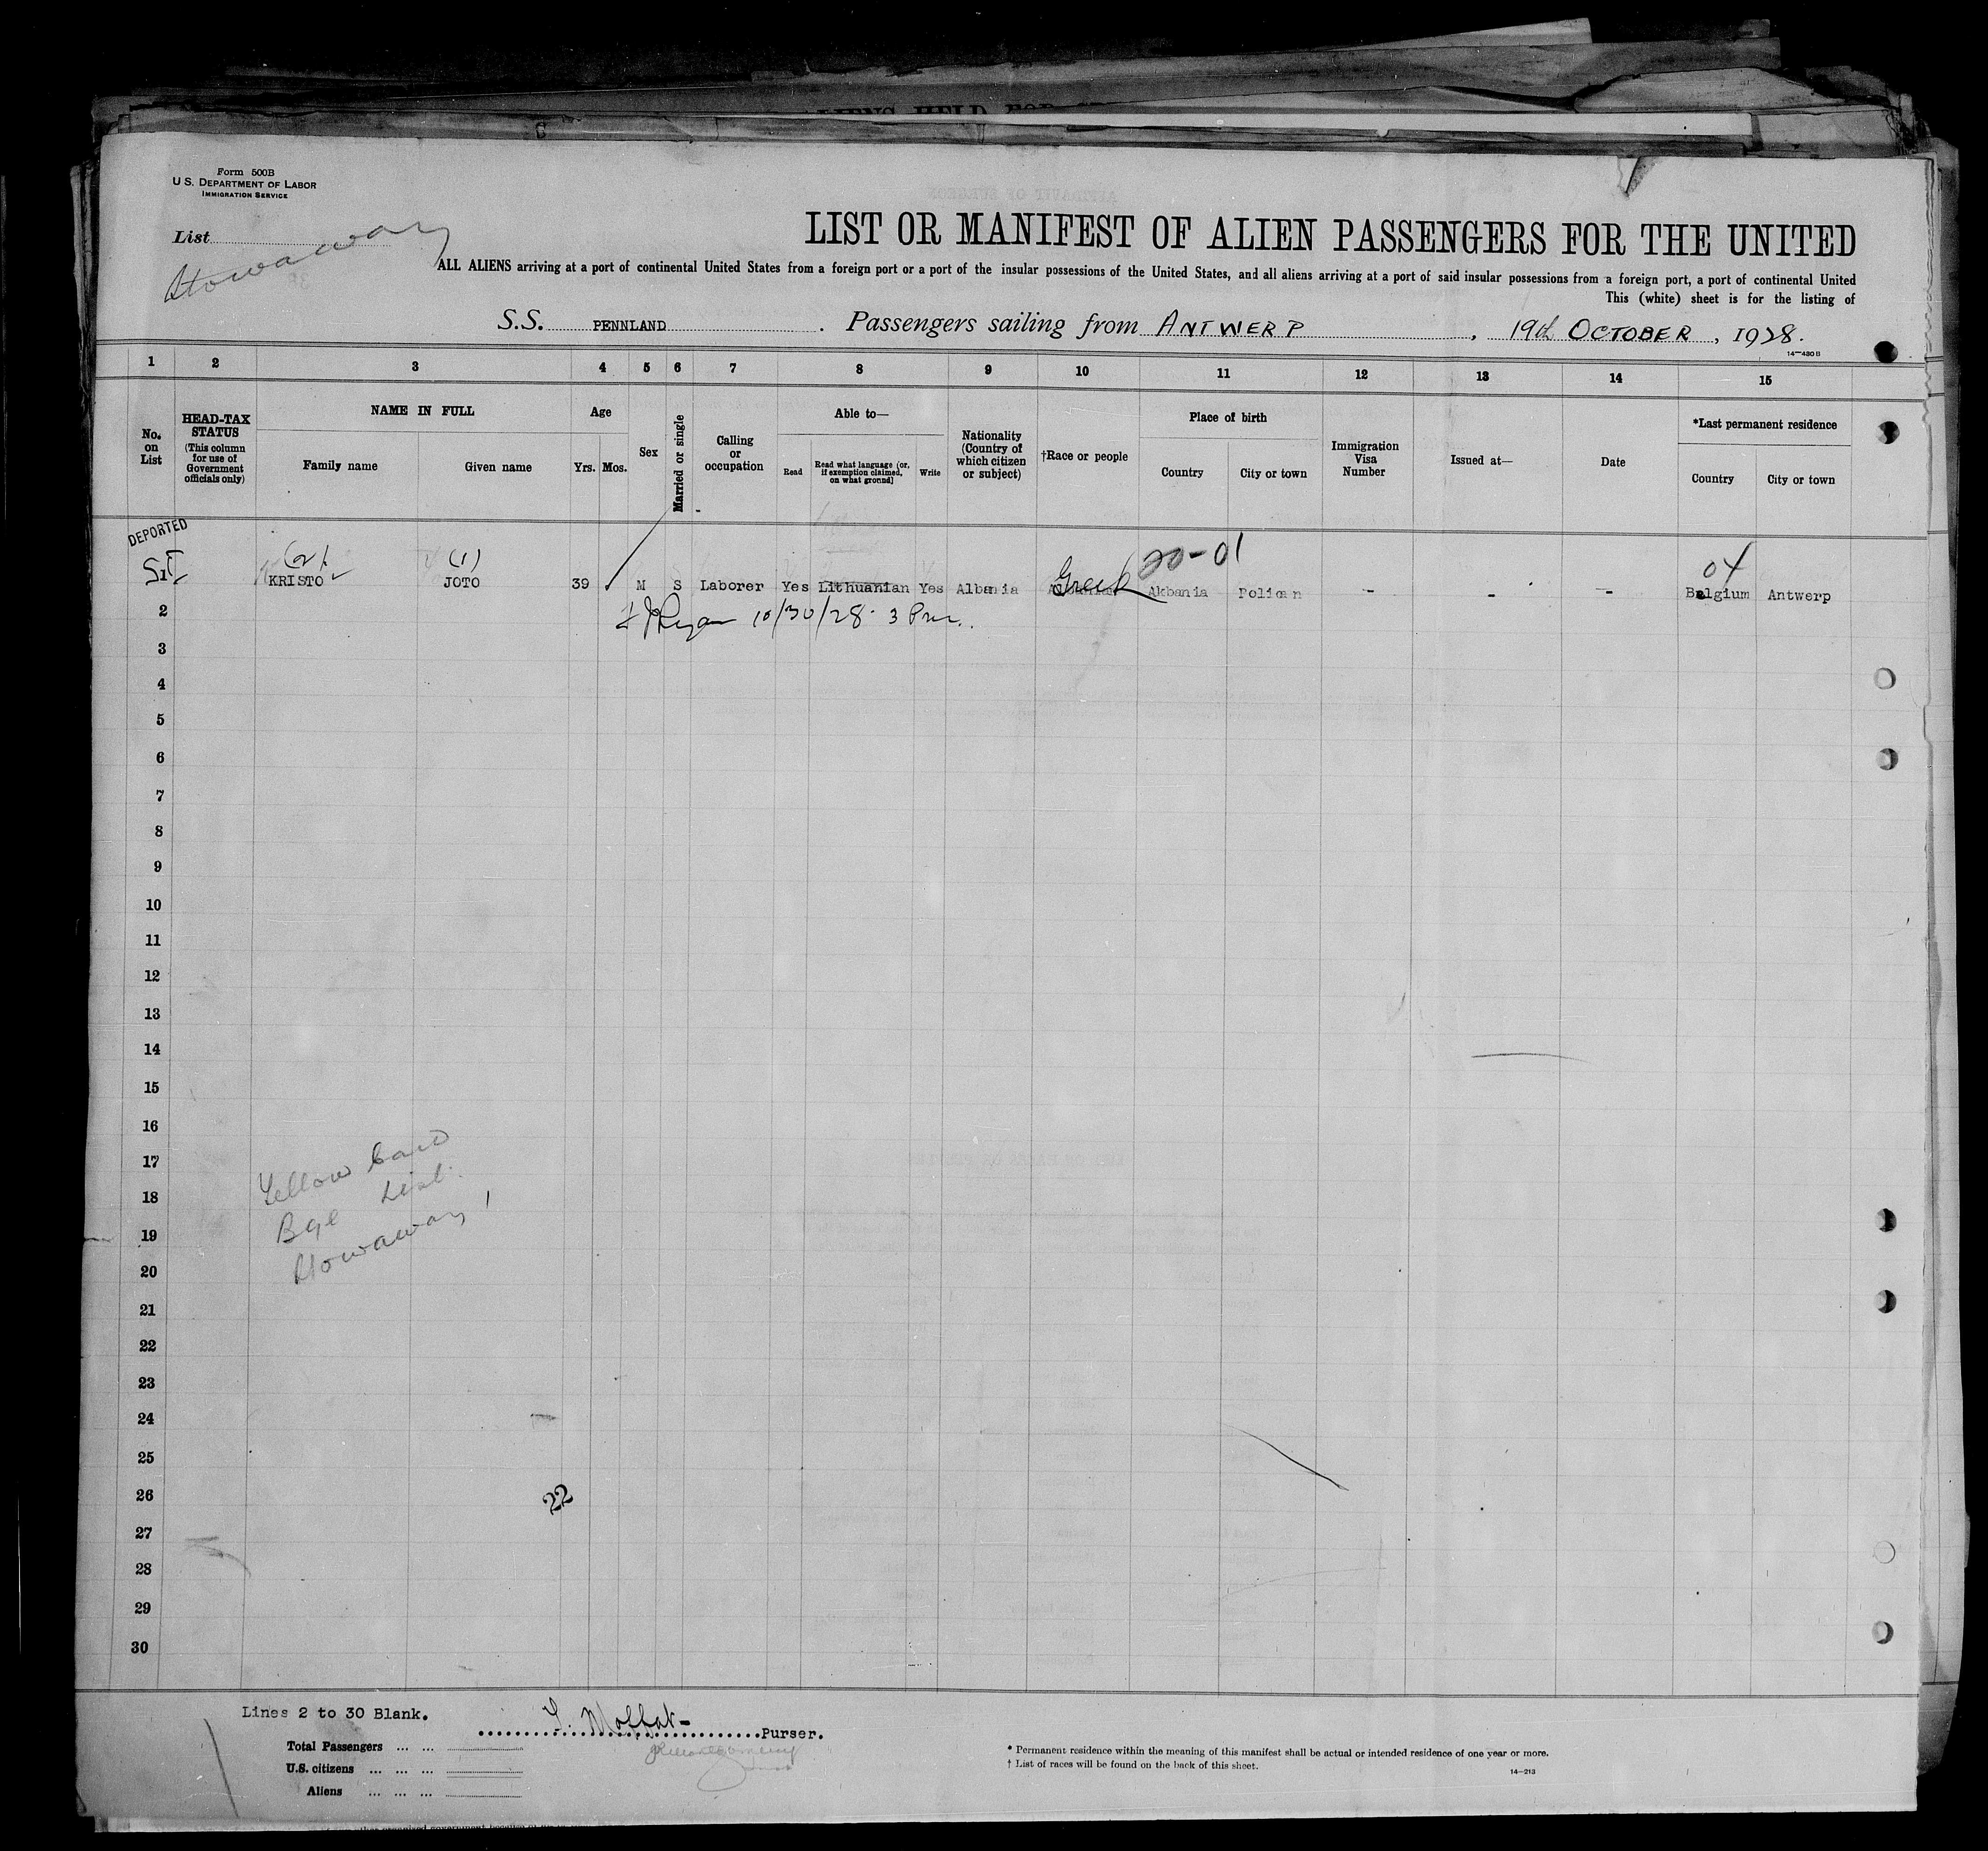 ALIENS HELD FOR
Form 500B
U.S. DEPARTMENT OF LABOR
IMMIGRATION SERVICE
List
Stowaway
LIST OR MANIFEST OF ALIEN PASSENGERS FOR THE UNITED
ALL ALIENS arriving at a port of continental United States from a foreign port or a port of the insular possessions of the United States, and all aliens arriving at a port of said insular possessions from a foreign port, a port of continental United
This (white) sheet is for the listing of
S.S. PENNLAND. Passengers sailing from ANTWERP, 19th OCTOBER, 1928.
14—430 B
1 2 3 4 5 6 7 8 9 10 11 12 13 14 15
No. on List
HEAD-TAX STATUS
(This column for use of Government officials only)
NAME IN FULL
Family name Given name
Age
Yrs. Mos.
Sex
Married or single
Calling or occupation
Able to—
Read Read what language (or, if exemption claimed, on what ground) Write
Nationality (Country of which citizen or subject)
†Race or people
Place of birth
Country City or town
Immigration Visa Number
Issued at—
Date
*Last permanent residence
Country City or town
DEPORTED
(2) (1) 20-01 04
KRISTO JOTO 39 M S Laborer Yes Lithuanian Yes Albania Greek Akbania Polican - - - Belgium Antwerp
2 10/30/28 3 Pm.
3
4
5
6
7
8
9
10
11
12
13
14
15
16
17
18
19
20
21
22
23
24
25
26
27
28
29
30
Yellow Card
List.
Stowaway
22
Lines 2 to 30 Blank.
Purser.
Total Passengers ... ...
U.S. citizens ... ... ...
Aliens ... ... ...
* Permanent residence within the meaning of this manifest shall be actual or intended residence of one year or more.
† List of races will be found on the back of this sheet.
14—213